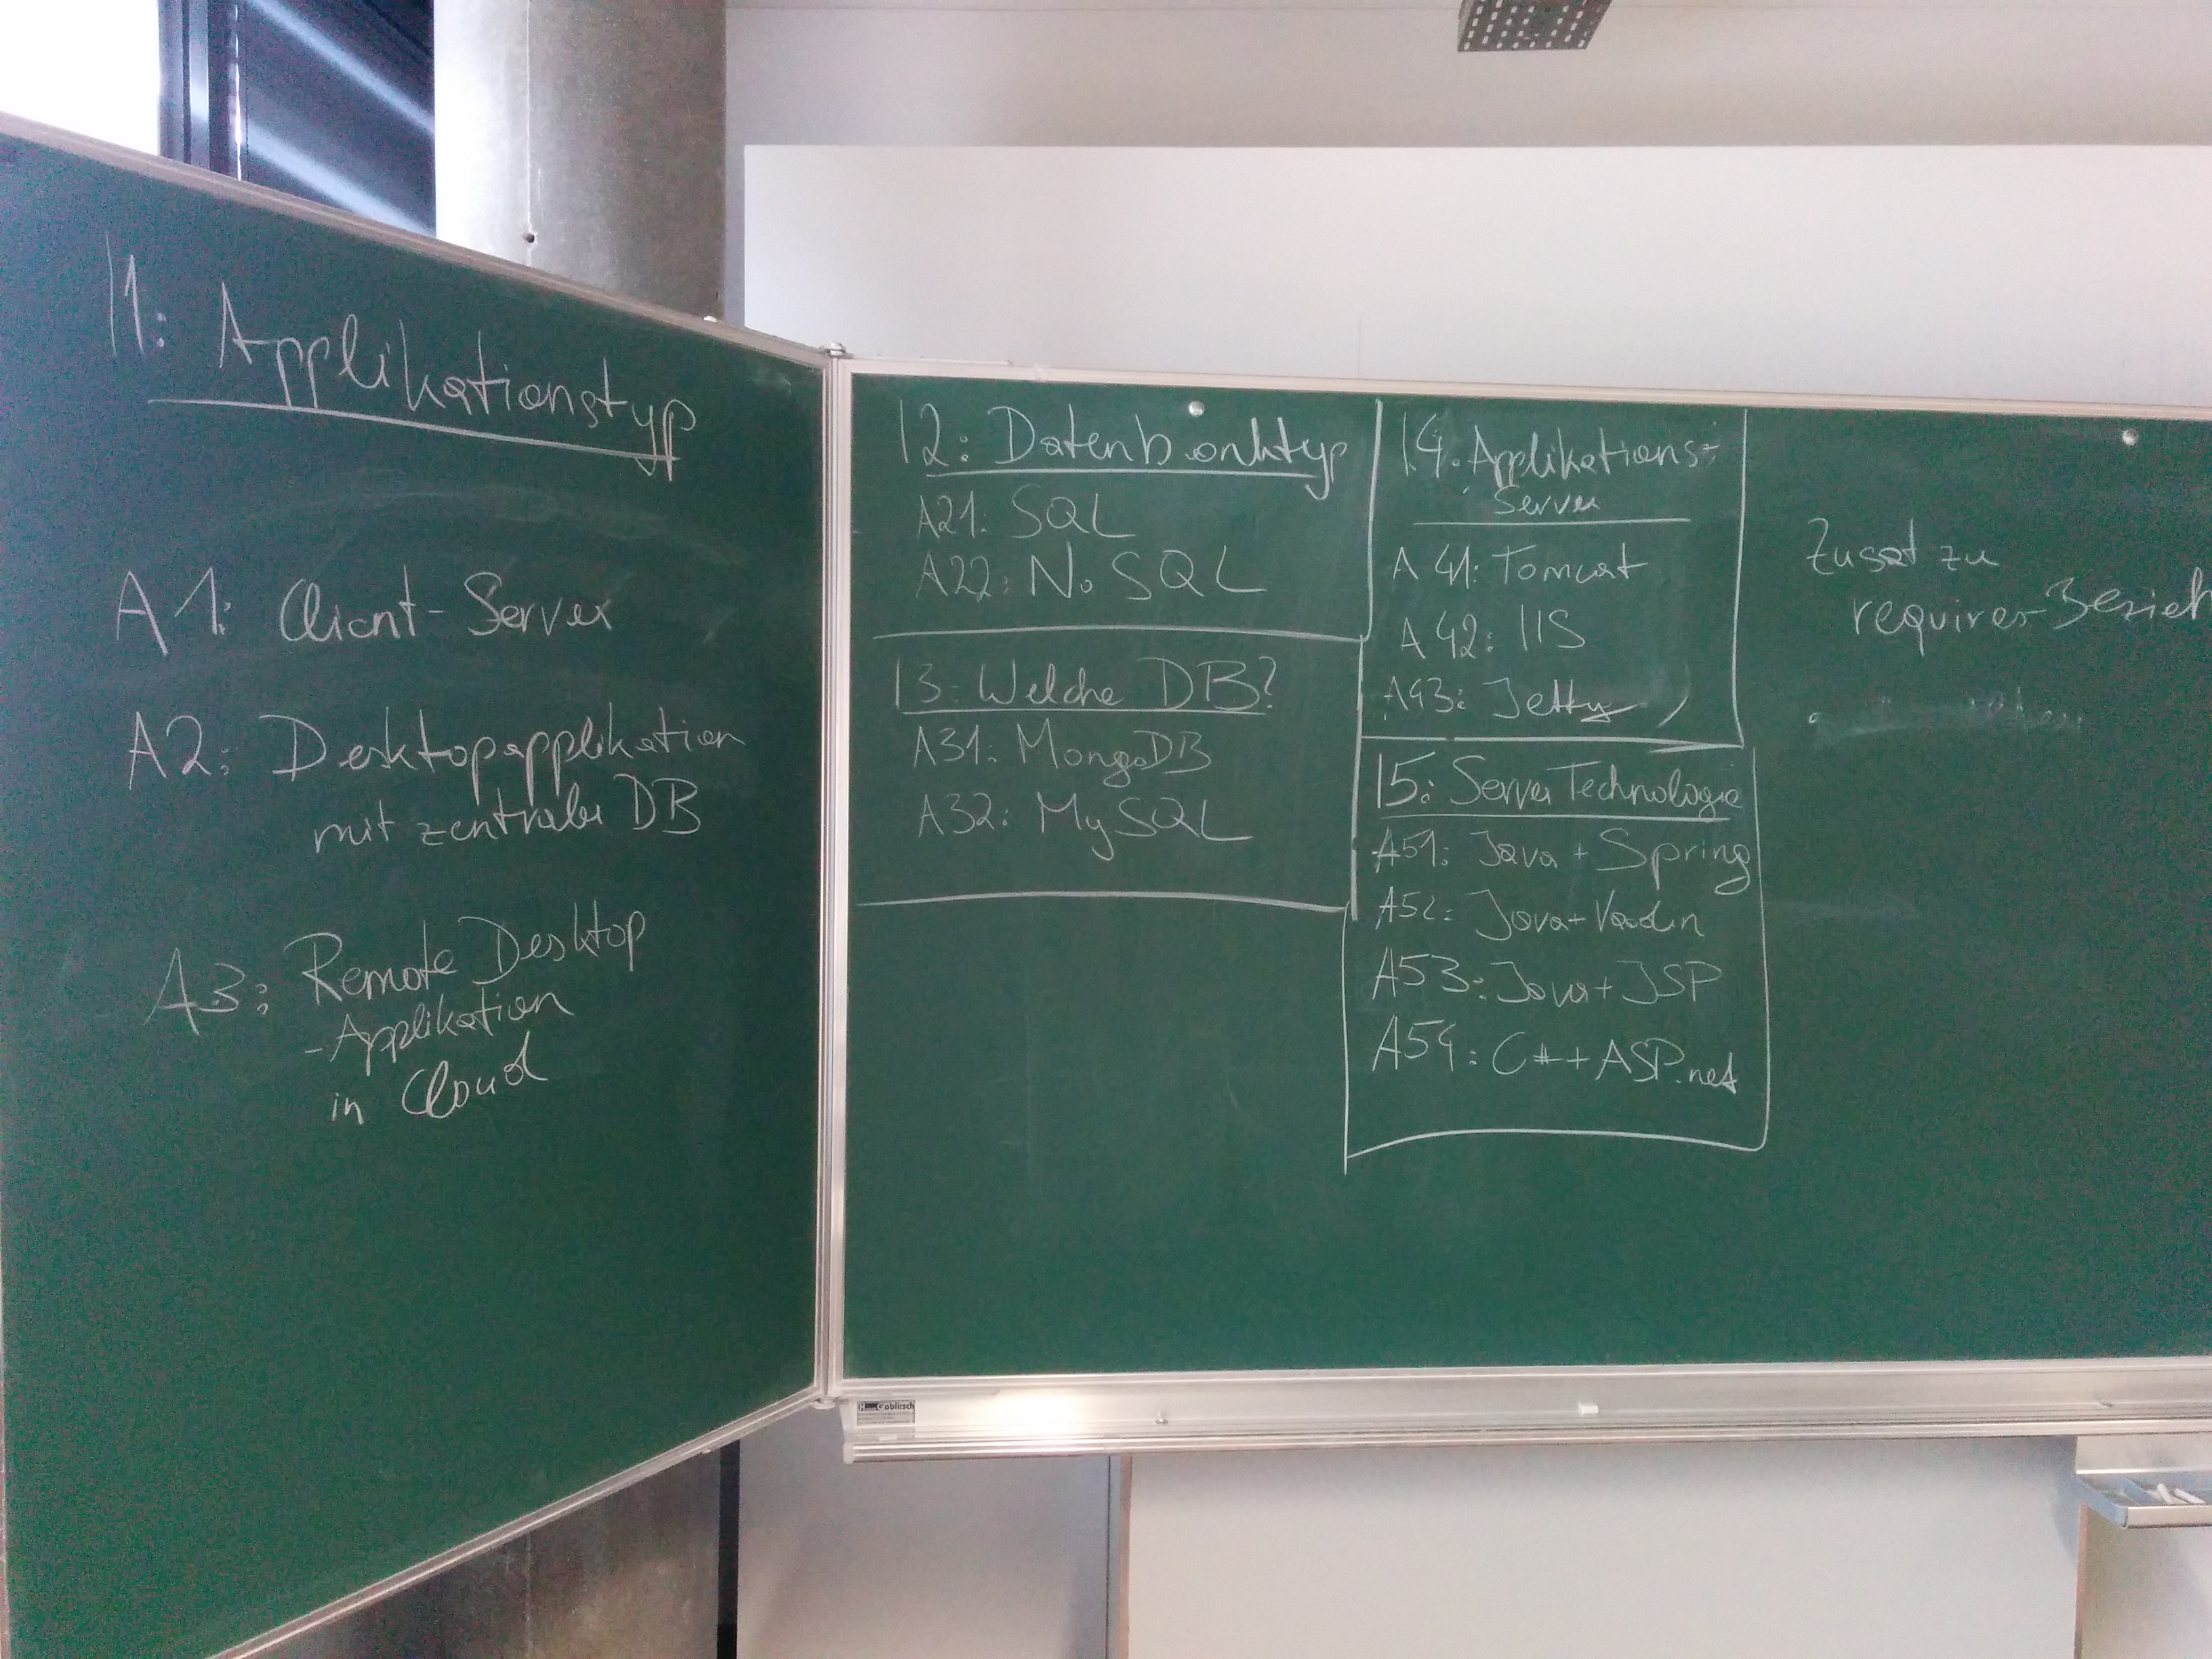 I1: Applikationstyp
A1: Client-Server
A2: Desktopapplikation
mit zentraler DB
A3: Remote Desktop
-Applikation
in Cloud
I2: Datenbanktyp
A21: SQL
A22: NoSQL
I3: Welche DB?
A31: MongoDB
A32: MySQL
I4: Applikations-
Server
A41: Tomcat
A42: IIS
A43: Jetty
I5: ServerTechnologie
A51: Java + Spring
A52: Java + Vaadin
A53: Java + JSP
A54: C# + ASP.net
Zusatz zu
requires-Bezieh